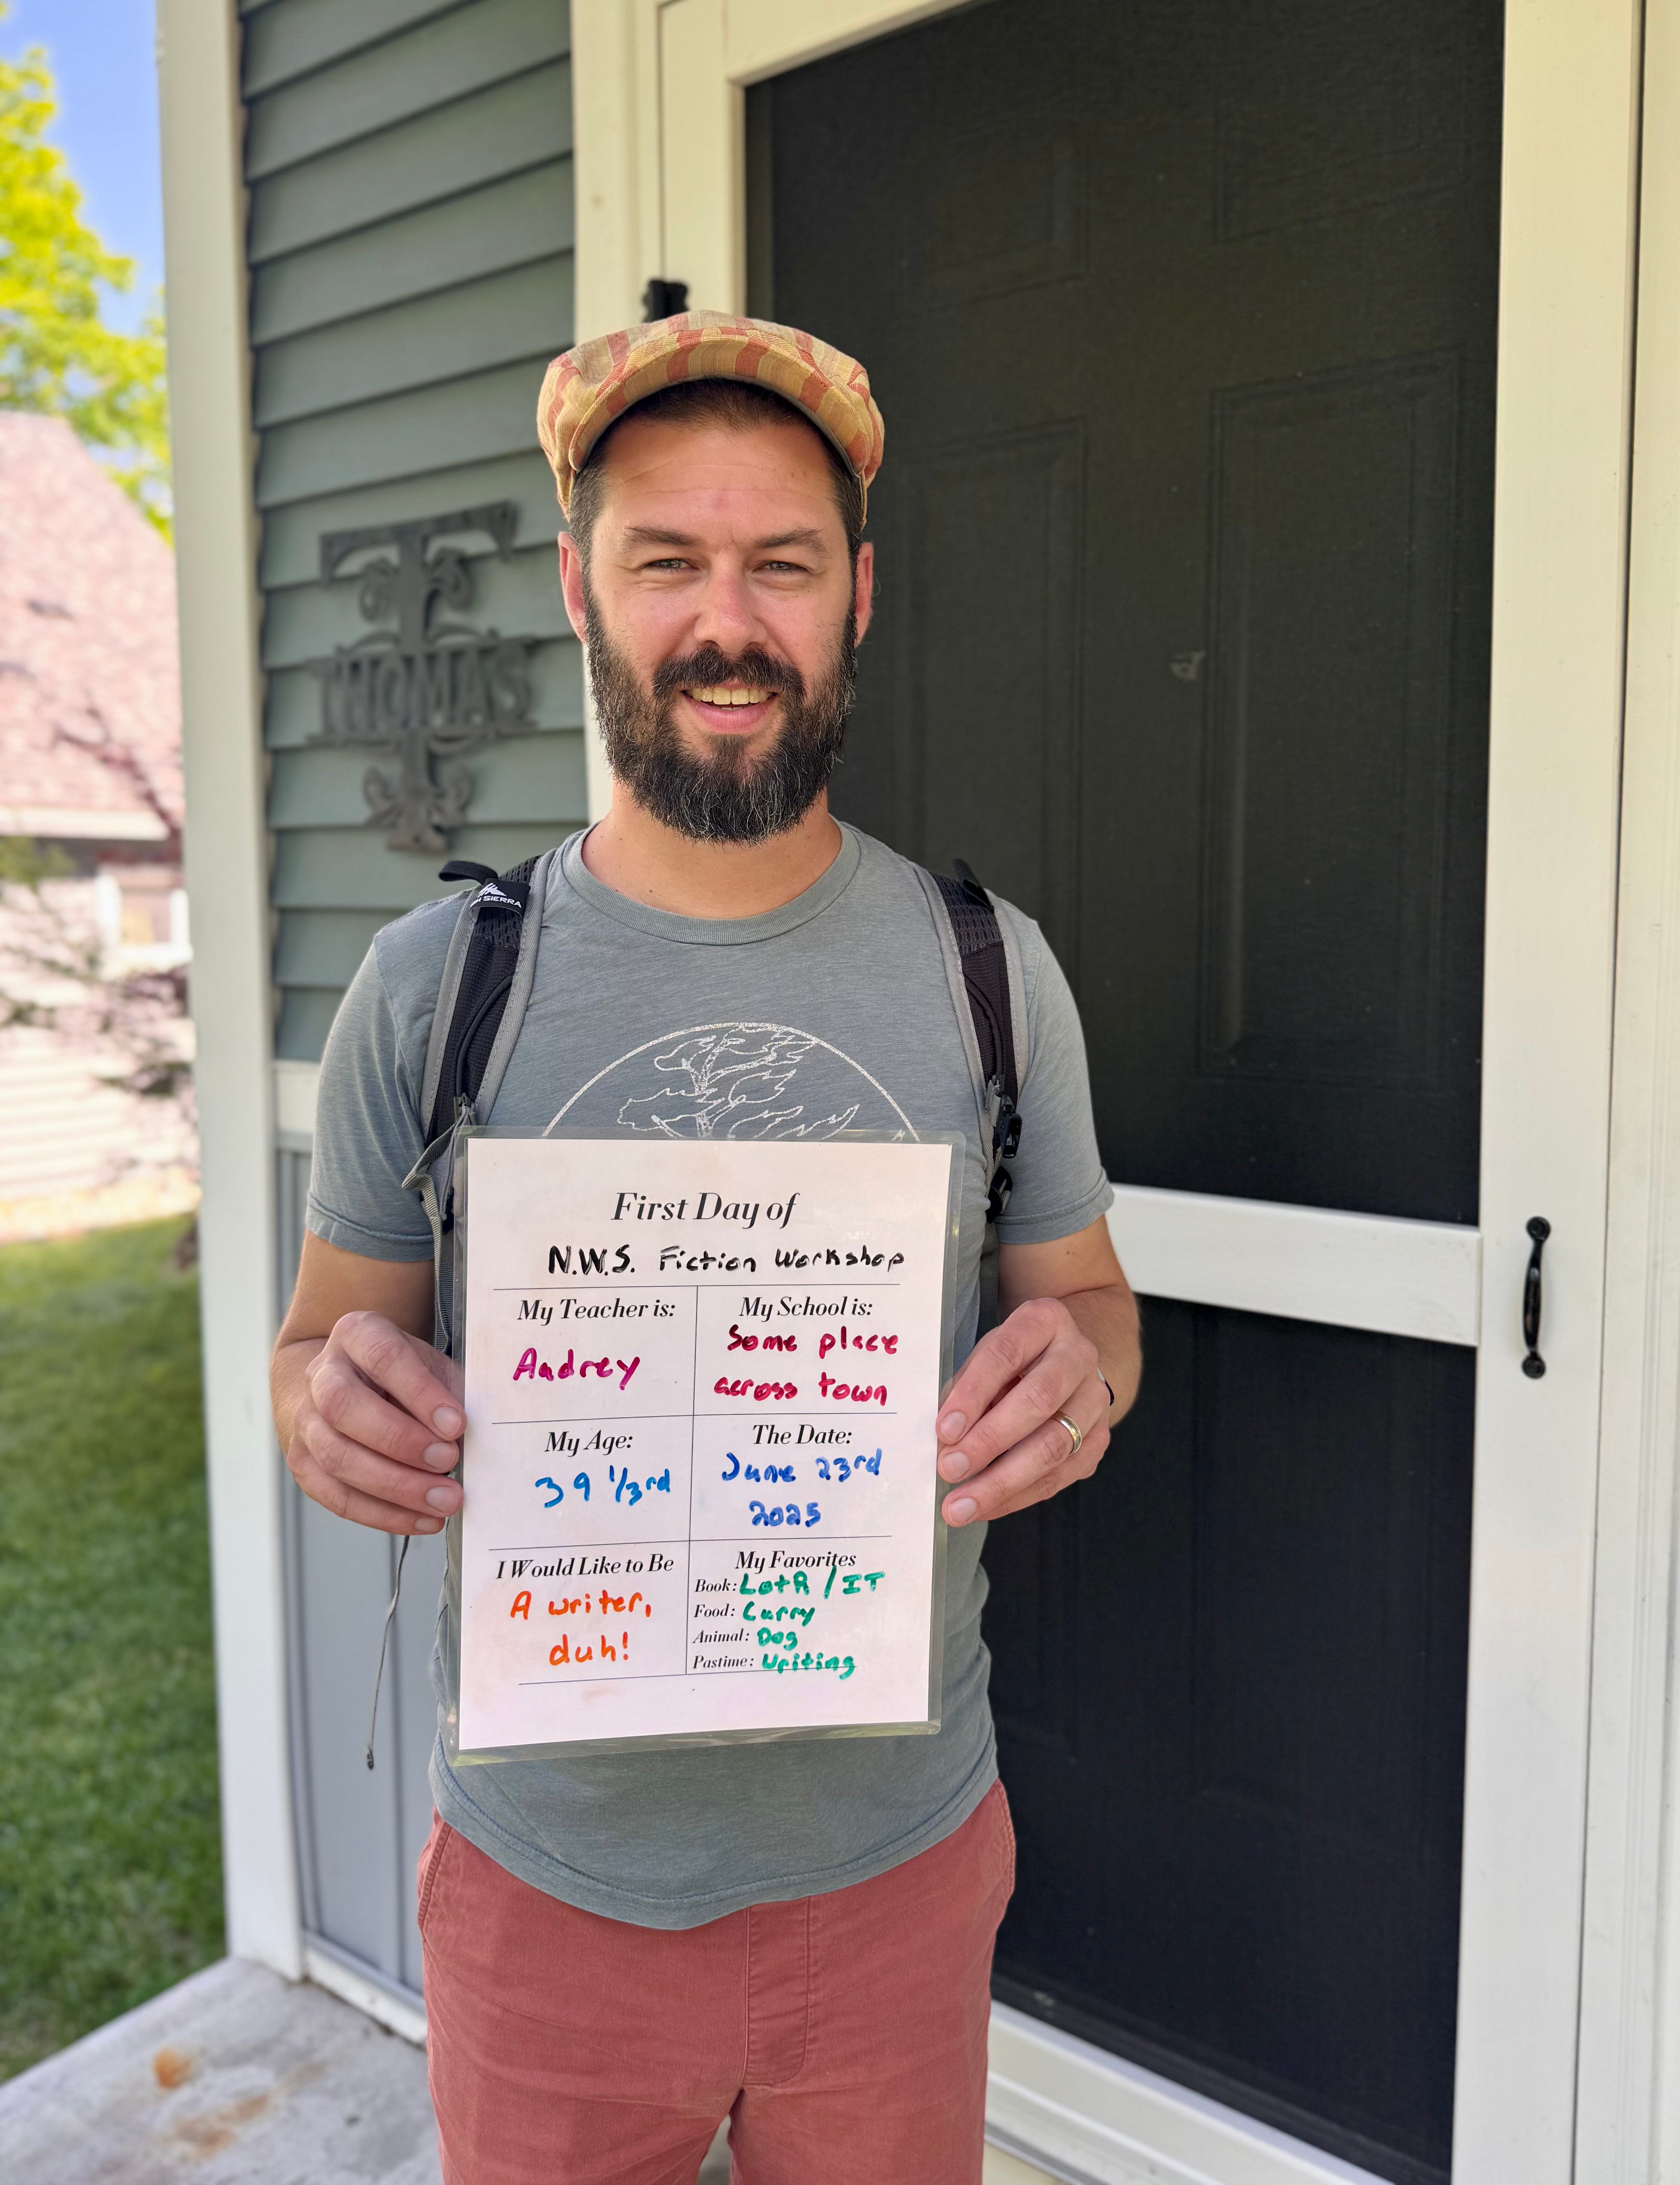 T
THOMAS
SIERRA
First Day of
N.W.S. Fiction Workshop
My Teacher is:
Audrey
My School is:
Some place
across town
My Age:
39 1/3rd
The Date:
June 23rd
2025
I Would Like to Be
A writer,
duh!
My Favorites
Book: LotR / IT
Food: Curry
Animal: Dog
Pastime: Writing